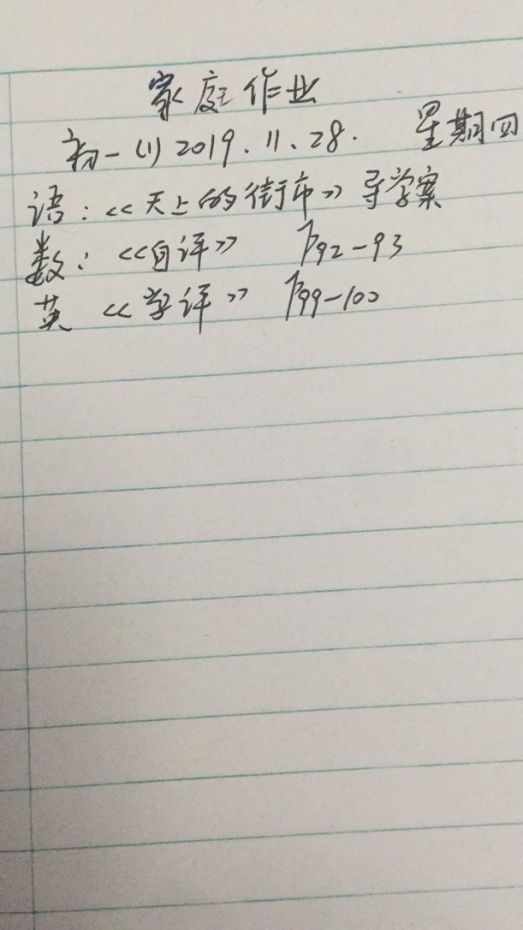 家庭作业
初一(1) 2019.11.28. 星期四
语:《天上的街市》导学案
数:《自评》 P92-93
英 《学评》 P99-100